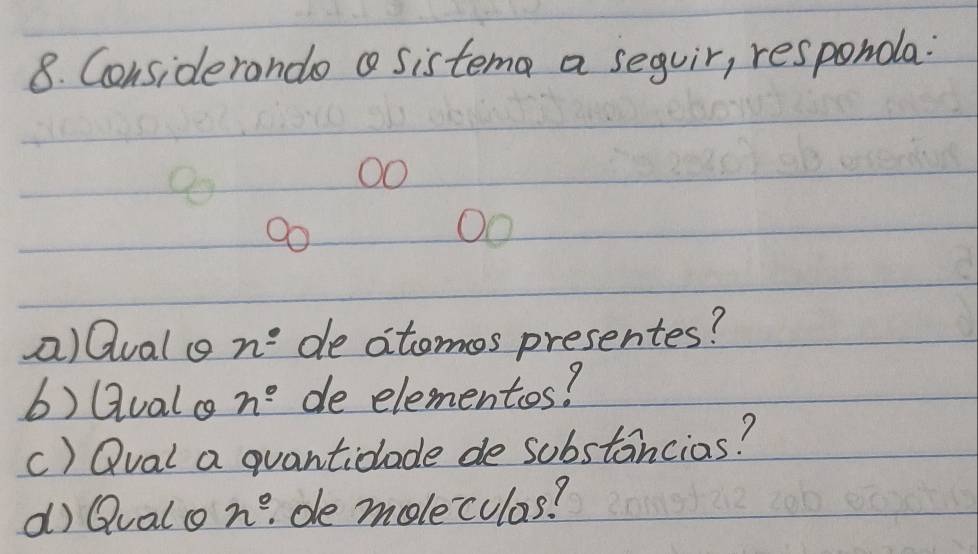 8. Considerando o sistema a seguir, responda:
a) Qual o nº de átomos presentes?
b) Qual o nº de elementos?
c) Qual a quantidade de substâncias?
d) Qual o nº. de moléculas?